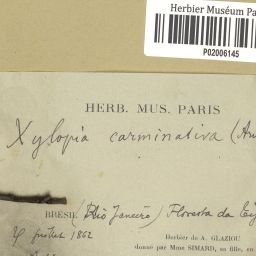 Herbier Muséum Pa
P02006145
HERB. MUS. PARIS
Xylopia carminativa (
BRÉSIL (Rio Janeiro) Floresta da
juillet 1862
Herbier de A. GLAZIOU
donné par Mme SIMARD, sa fille, en